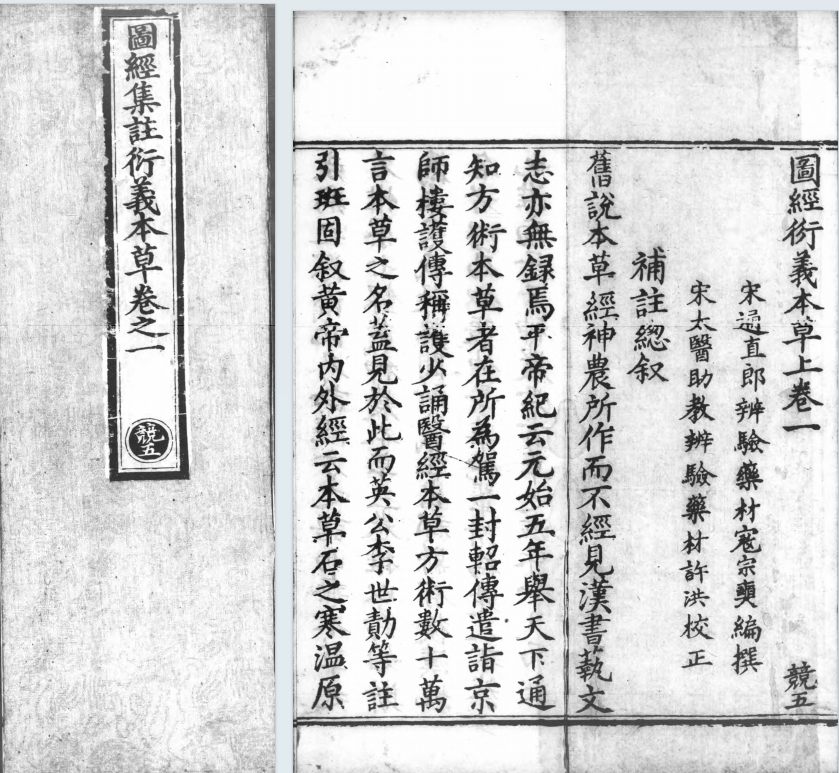 圖經集註衍義本草卷之一
競五
圖經衍義本草上卷一
競五
宋通直郎辨驗藥材寇宗奭編撰
宋太醫助教辨驗藥材許洪校正
補註總叙
舊說本草經神農所作而不經見漢書藝文
志亦無録焉平帝紀云元始五年舉天下通
知方術本草者在所為駕一封軺傳遣詣京
師樓護傳稱護少誦醫經本草方術數十萬
言本草之名蓋見於此而英公李世勣等註
引班固叙黄帝内外經云本草石之寒温原